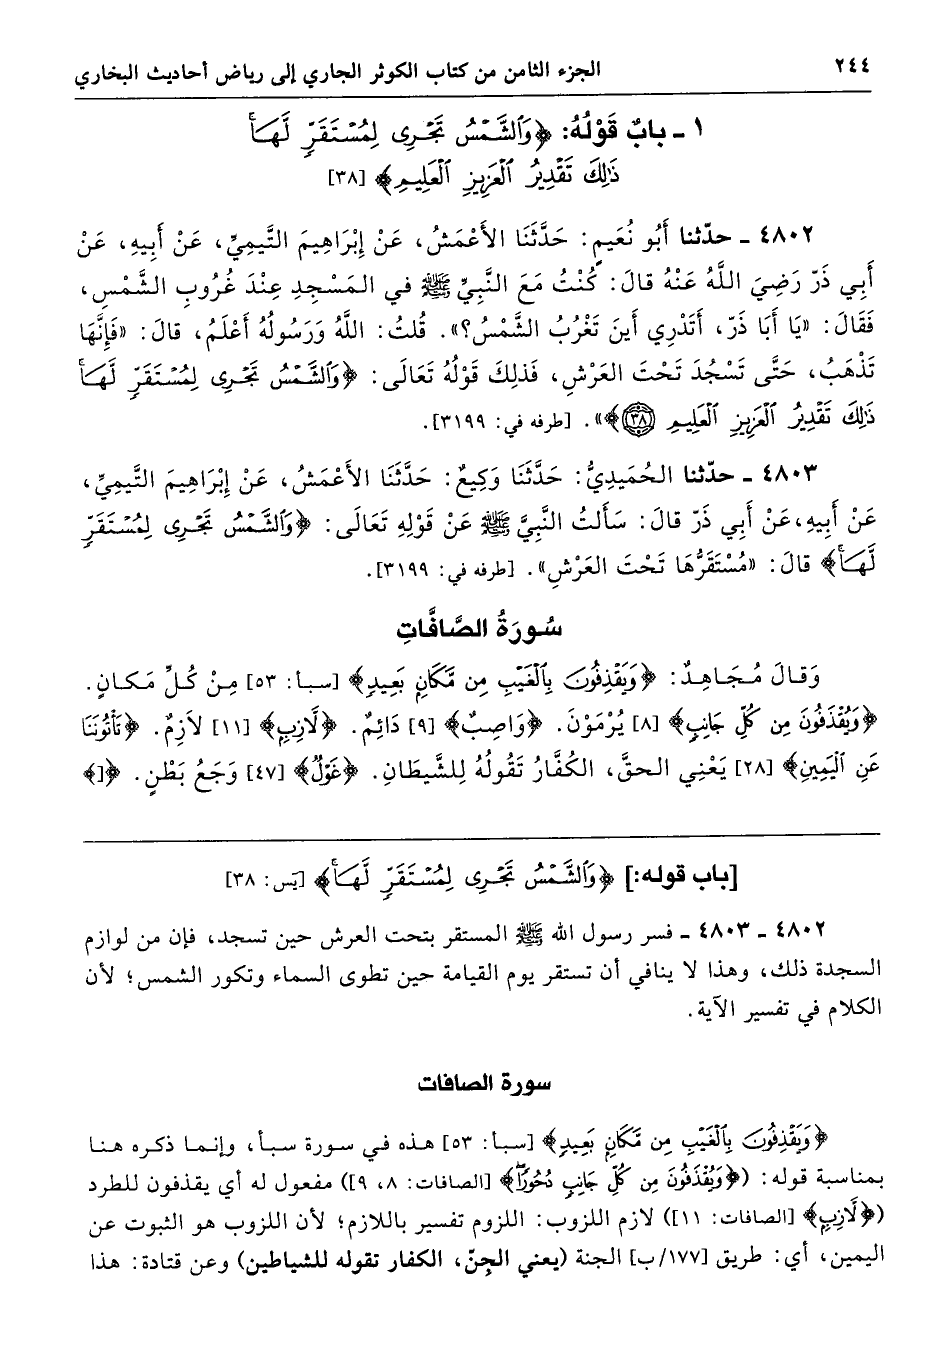 ٢٤٤ الجزء الثامن من كتاب الكوثر الجاري إلى رياض أحاديث البخاري
١ ـ بابُ قَوْلُهُ: ﴿وَٱلشَّمْسُ تَجْرِى لِمُسْتَقَرٍّ لَّهَاۚ
ذَٰلِكَ تَقْدِيرُ ٱلْعَزِيزِ ٱلْعَلِيمِ﴾ [٣٨]
٤٨٠٢ ـ حدّثنا أَبُو نُعَيمٍ: حَدَّثَنَا الأَعْمَشُ، عَنْ إِبْرَاهِيمَ التَّيمِيِّ، عَنْ أَبِيهِ، عَنْ
أَبِي ذَرّ رَضِيَ اللَّهُ عَنْهُ قالَ: كُنْتُ مَعَ النَّبِيِّ ﷺ في المَسْجِدِ عِنْدَ غُرُوبِ الشَّمْسِ،
فَقَالَ: «يَا أَبَا ذَرّ، أَتَدْرِي أَينَ تَغْرُبُ الشَّمْسُ؟». قُلتُ: اللَّهُ وَرَسُولُهُ أَعْلَمُ، قالَ: «فَإِنَّهَا
تَذْهَبُ، حَتَّى تَسْجُدَ تَحْتَ العَرْشِ، فَذلِكَ قَوْلُهُ تَعَالَى: ﴿وَٱلشَّمْسُ تَجْرِى لِمُسْتَقَرٍّ لَّهَاۚ
ذَٰلِكَ تَقْدِيرُ ٱلْعَزِيزِ ٱلْعَلِيمِ ٣٨﴾». [طرفه في: ٣١٩٩].
٤٨٠٣ ـ حدّثنا الحُمَيدِيُّ: حَدَّثَنَا وَكِيعٌ: حَدَّثَنَا الأَعْمَشُ، عَنْ إِبْرَاهِيمَ التَّيمِيِّ،
عَنْ أَبِيهِ، عَنْ أَبِي ذَرّ قالَ: سَأَلتُ النَّبِيَّ ﷺ عَنْ قَوْلِهِ تَعَالَى: ﴿وَٱلشَّمْسُ تَجْرِى لِمُسْتَقَرٍّ
لَّهَاۚ﴾ قالَ: «مُسْتَقَرُّهَا تَحْتَ العَرْشِ». [طرفه في: ٣١٩٩].
سُورَةُ الصَّافَّاتِ
وَقالَ مُجَاهِدٌ: ﴿وَيَقْذِفُونَ بِٱلْغَيْبِ مِن مَّكَانٍۭ بَعِيدٍ﴾ [سبأ: ٥٣] مِنْ كُلِّ مَكانٍ.
﴿وَيُقْذَفُونَ مِن كُلِّ جَانِبٍ﴾ [٨] يُرْمَوْنَ. ﴿وَاصِبٌ﴾ [٩] دَائِمٌ. ﴿لَّازِبٍ﴾ [١١] لاَزِمٌ. ﴿تَأْتُونَنَا
عَنِ ٱلْيَمِينِ﴾ [٢٨] يَعْنِي الحقَّ، الكُفَّارُ تَقُولُهُ لِلشَّيطَانِ. ﴿غَوْلٌ﴾ [٤٧] وَجَعُ بَطْنٍ. ﴿[﴾
[باب قوله:] ﴿وَٱلشَّمْسُ تَجْرِى لِمُسْتَقَرٍّ لَّهَاۚ﴾ [يَس: ٣٨]
٤٨٠٢ ـ ٤٨٠٣ ـ فسر رسول الله ﷺ المستقر بتحت العرش حين تسجد، فإن من لوازم
السجدة ذلك، وهذا لا ينافي أن تستقر يوم القيامة حين تطوى السماء وتكور الشمس؛ لأن
الكلام في تفسير الآية.
سورة الصافات
﴿وَيَقْذِفُونَ بِٱلْغَيْبِ مِن مَّكَانٍۭ بَعِيدٍ﴾ [سبأ: ٥٣] هذه في سورة سبأ، وإنما ذكره هنا
بمناسبة قوله: (﴿وَيُقْذَفُونَ مِن كُلِّ جَانِبٍ دُحُورًاۖ﴾ [الصافات: ٨، ٩]) مفعول له أي يقذفون للطرد
(﴿لَّازِبٍ﴾ [الصافات: ١١]) لازم اللزوب: اللزوم تفسير باللازم؛ لأن اللزوب هو الثبوت عن
اليمين، أي: طريق [١٧٧/ب] الجنة (يعني الجِنّ، الكفار تقوله للشياطين) وعن قتادة: هذا